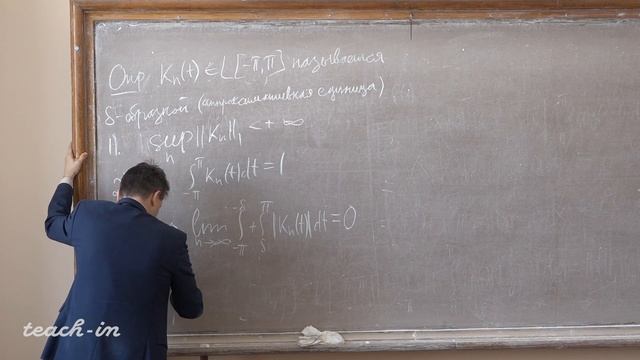 Опр K_n(t) ∈ L[-π,π] называется
δ-образной (аппроксимативная единица)
1). sup_n ||K_n||_1 < +∞
∫_{-π}^{π} K_n(t)dt = 1
lim_{n→∞} ∫_{-π}^{-δ} + ∫_{δ}^{π} |K_n(t)|dt = 0
teach-in